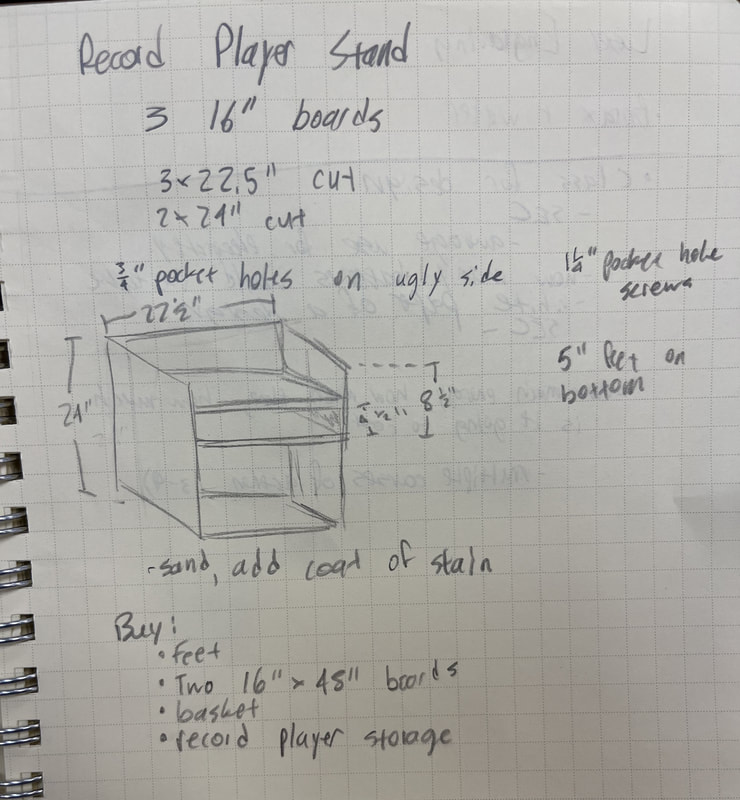 Record Player Stand
3 16" boards
3 x 22.5" cut
2 x 24" cut
3/4" pocket holes on ugly side
1 1/4" pocket hole
screws
22 1/2"
24"
8 1/2"
4 1/2"
5" feet on
bottom
-sand, add coat of stain
Buy:
• feet
• Two 16" x 48" boards
• basket
• record player storage